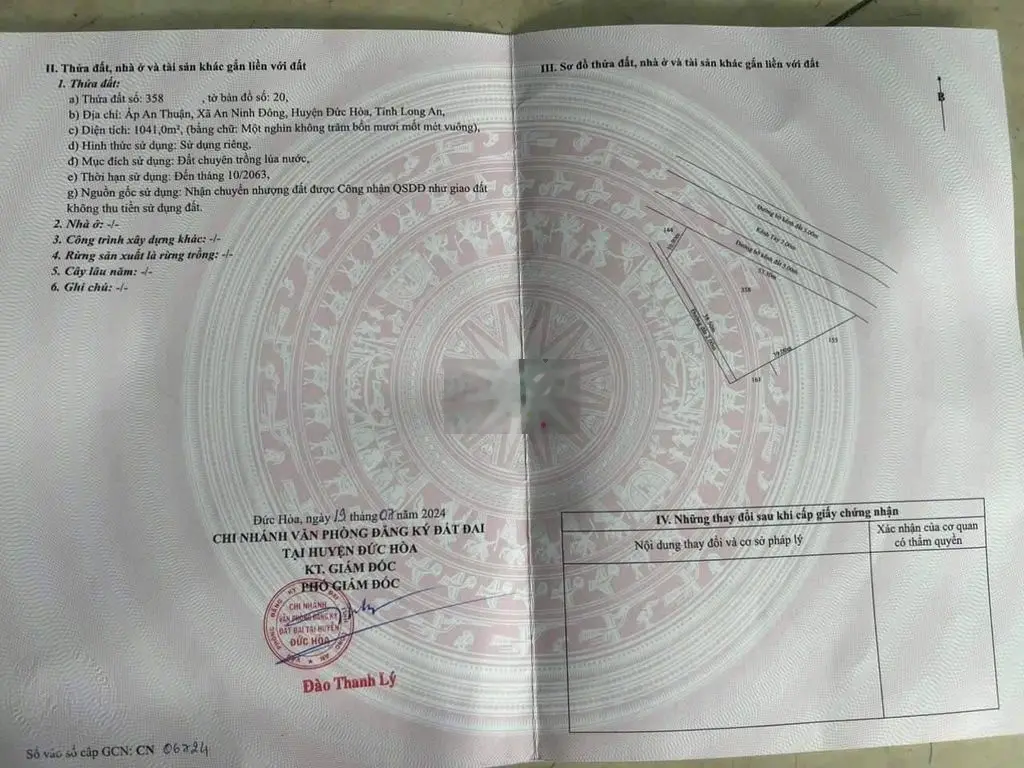 II. Thửa đất, nhà ở và tài sản khác gắn liền với đất
1. Thửa đất:
a) Thửa đất số: 358 , tờ bản đồ số: 20,
b) Địa chỉ: Ấp An Thuận, Xã An Ninh Đông, Huyện Đức Hòa, Tỉnh Long An,
c) Diện tích: 1041,0m², (bằng chữ: Một nghìn không trăm bốn mươi mốt mét vuông),
d) Hình thức sử dụng: Sử dụng riêng,
đ) Mục đích sử dụng: Đất chuyên trồng lúa nước,
e) Thời hạn sử dụng: Đến tháng 10/2063,
g) Nguồn gốc sử dụng: Nhận chuyển nhượng đất được Công nhận QSDĐ như giao đất
không thu tiền sử dụng đất.
2. Nhà ở: -/-
3. Công trình xây dựng khác: -/-
4. Rừng sản xuất là rừng trồng: -/-
5. Cây lâu năm: -/-
6. Ghi chú: -/-
Đức Hòa, ngày 19 tháng 07 năm 2024
CHI NHÁNH VĂN PHÒNG ĐĂNG KÝ ĐẤT ĐAI
TẠI HUYỆN ĐỨC HÒA
KT. GIÁM ĐỐC
PHÓ GIÁM ĐỐC
CHI NHÁNH
VĂN PHÒNG ĐĂNG KÝ
ĐẤT ĐAI TẠI HUYỆN
ĐỨC HÒA
Đào Thanh Lý
Số vào sổ cấp GCN: CN 06724
III. Sơ đồ thửa đất, nhà ở và tài sản khác gắn liền với đất
B
Đường bờ kênh đất 5.00m
Kênh Tây 7.00m
Đường bờ kênh đất 5.00m
144
358
Đường đất 2.00m
155
161
IV. Những thay đổi sau khi cấp giấy chứng nhận
Nội dung thay đổi và cơ sở pháp lý
Xác nhận của cơ quan
có thẩm quyền